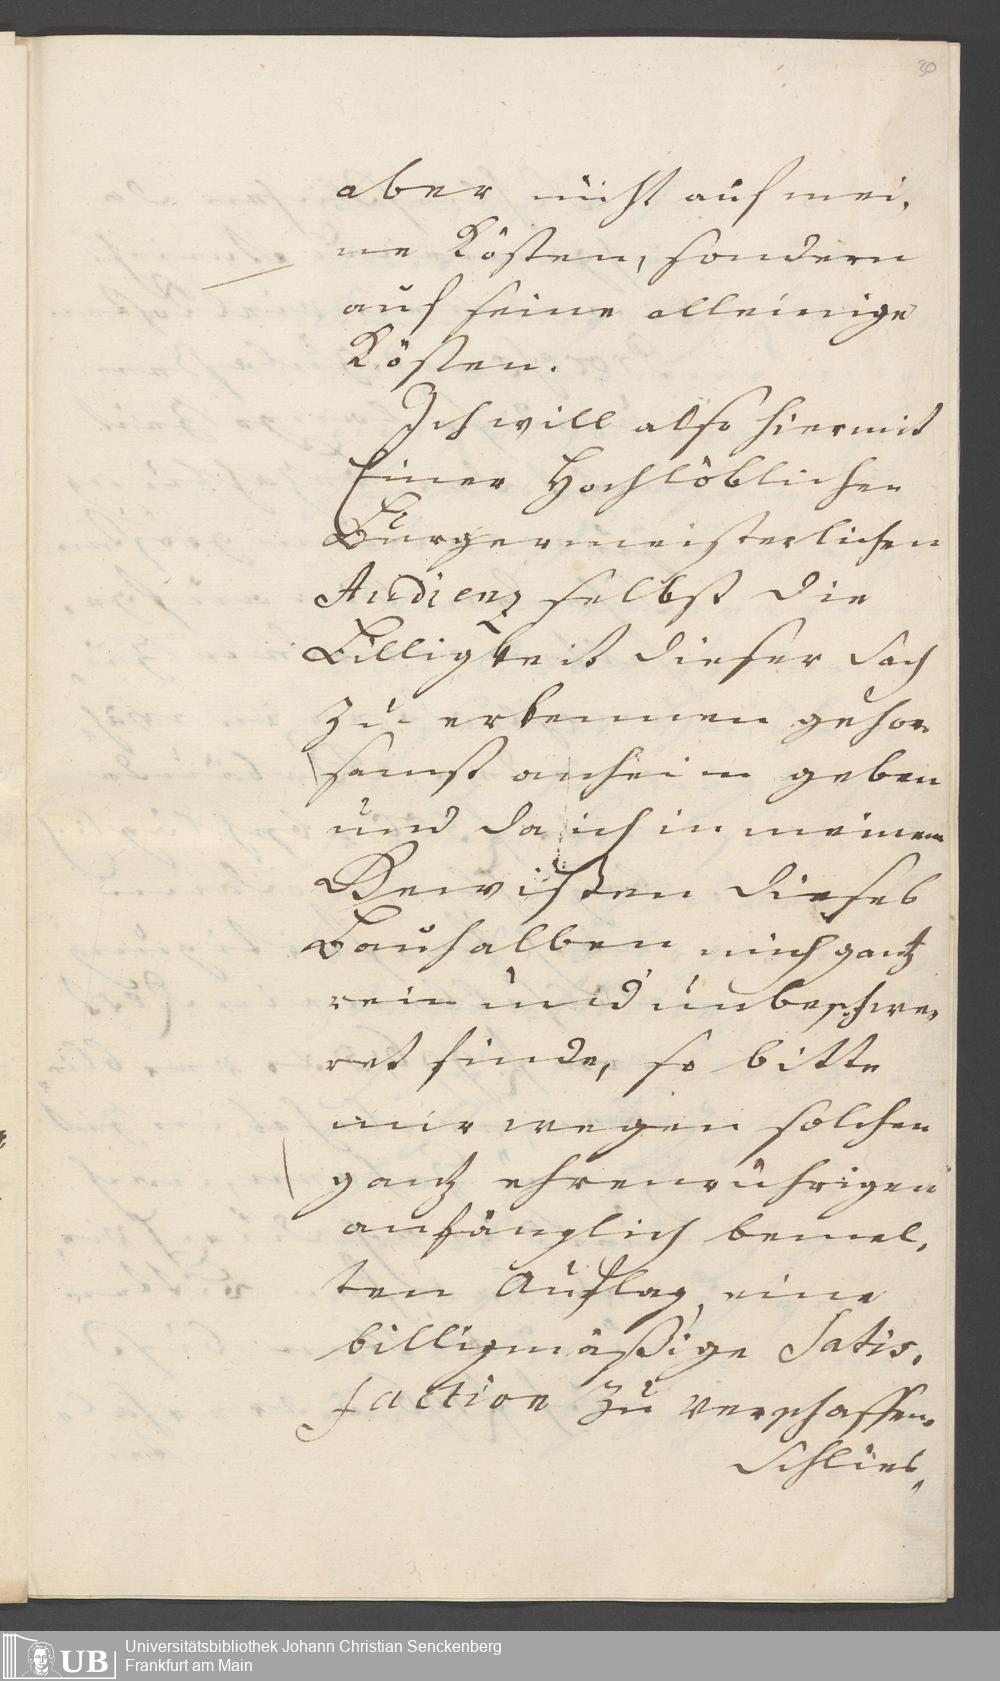 30
aber nicht auf mei,
ne Kösten, sondern
auf seine alleinige
Kösten.
Ich will also hiermit
Einer Hochlöblichen
Burgermeisterlichen
Audienz selbst die
Billigkeit dieser Sach
zu erkennen gehor
samst anheim geben
und da ich in meinem
Gewißen dieses
Bauhalben mich gantz
rein und unbeschwe,
ret finde, so bitte
mir wegen solchen
gantz ehrenrührigen
anfänglich bemel,
ten Auflag, eine
billigmäßige Satis,
faction zu verschaffen.
Schlies,
Universitätsbibliothek Johann Christian Senckenberg
Frankfurt am Main
UB